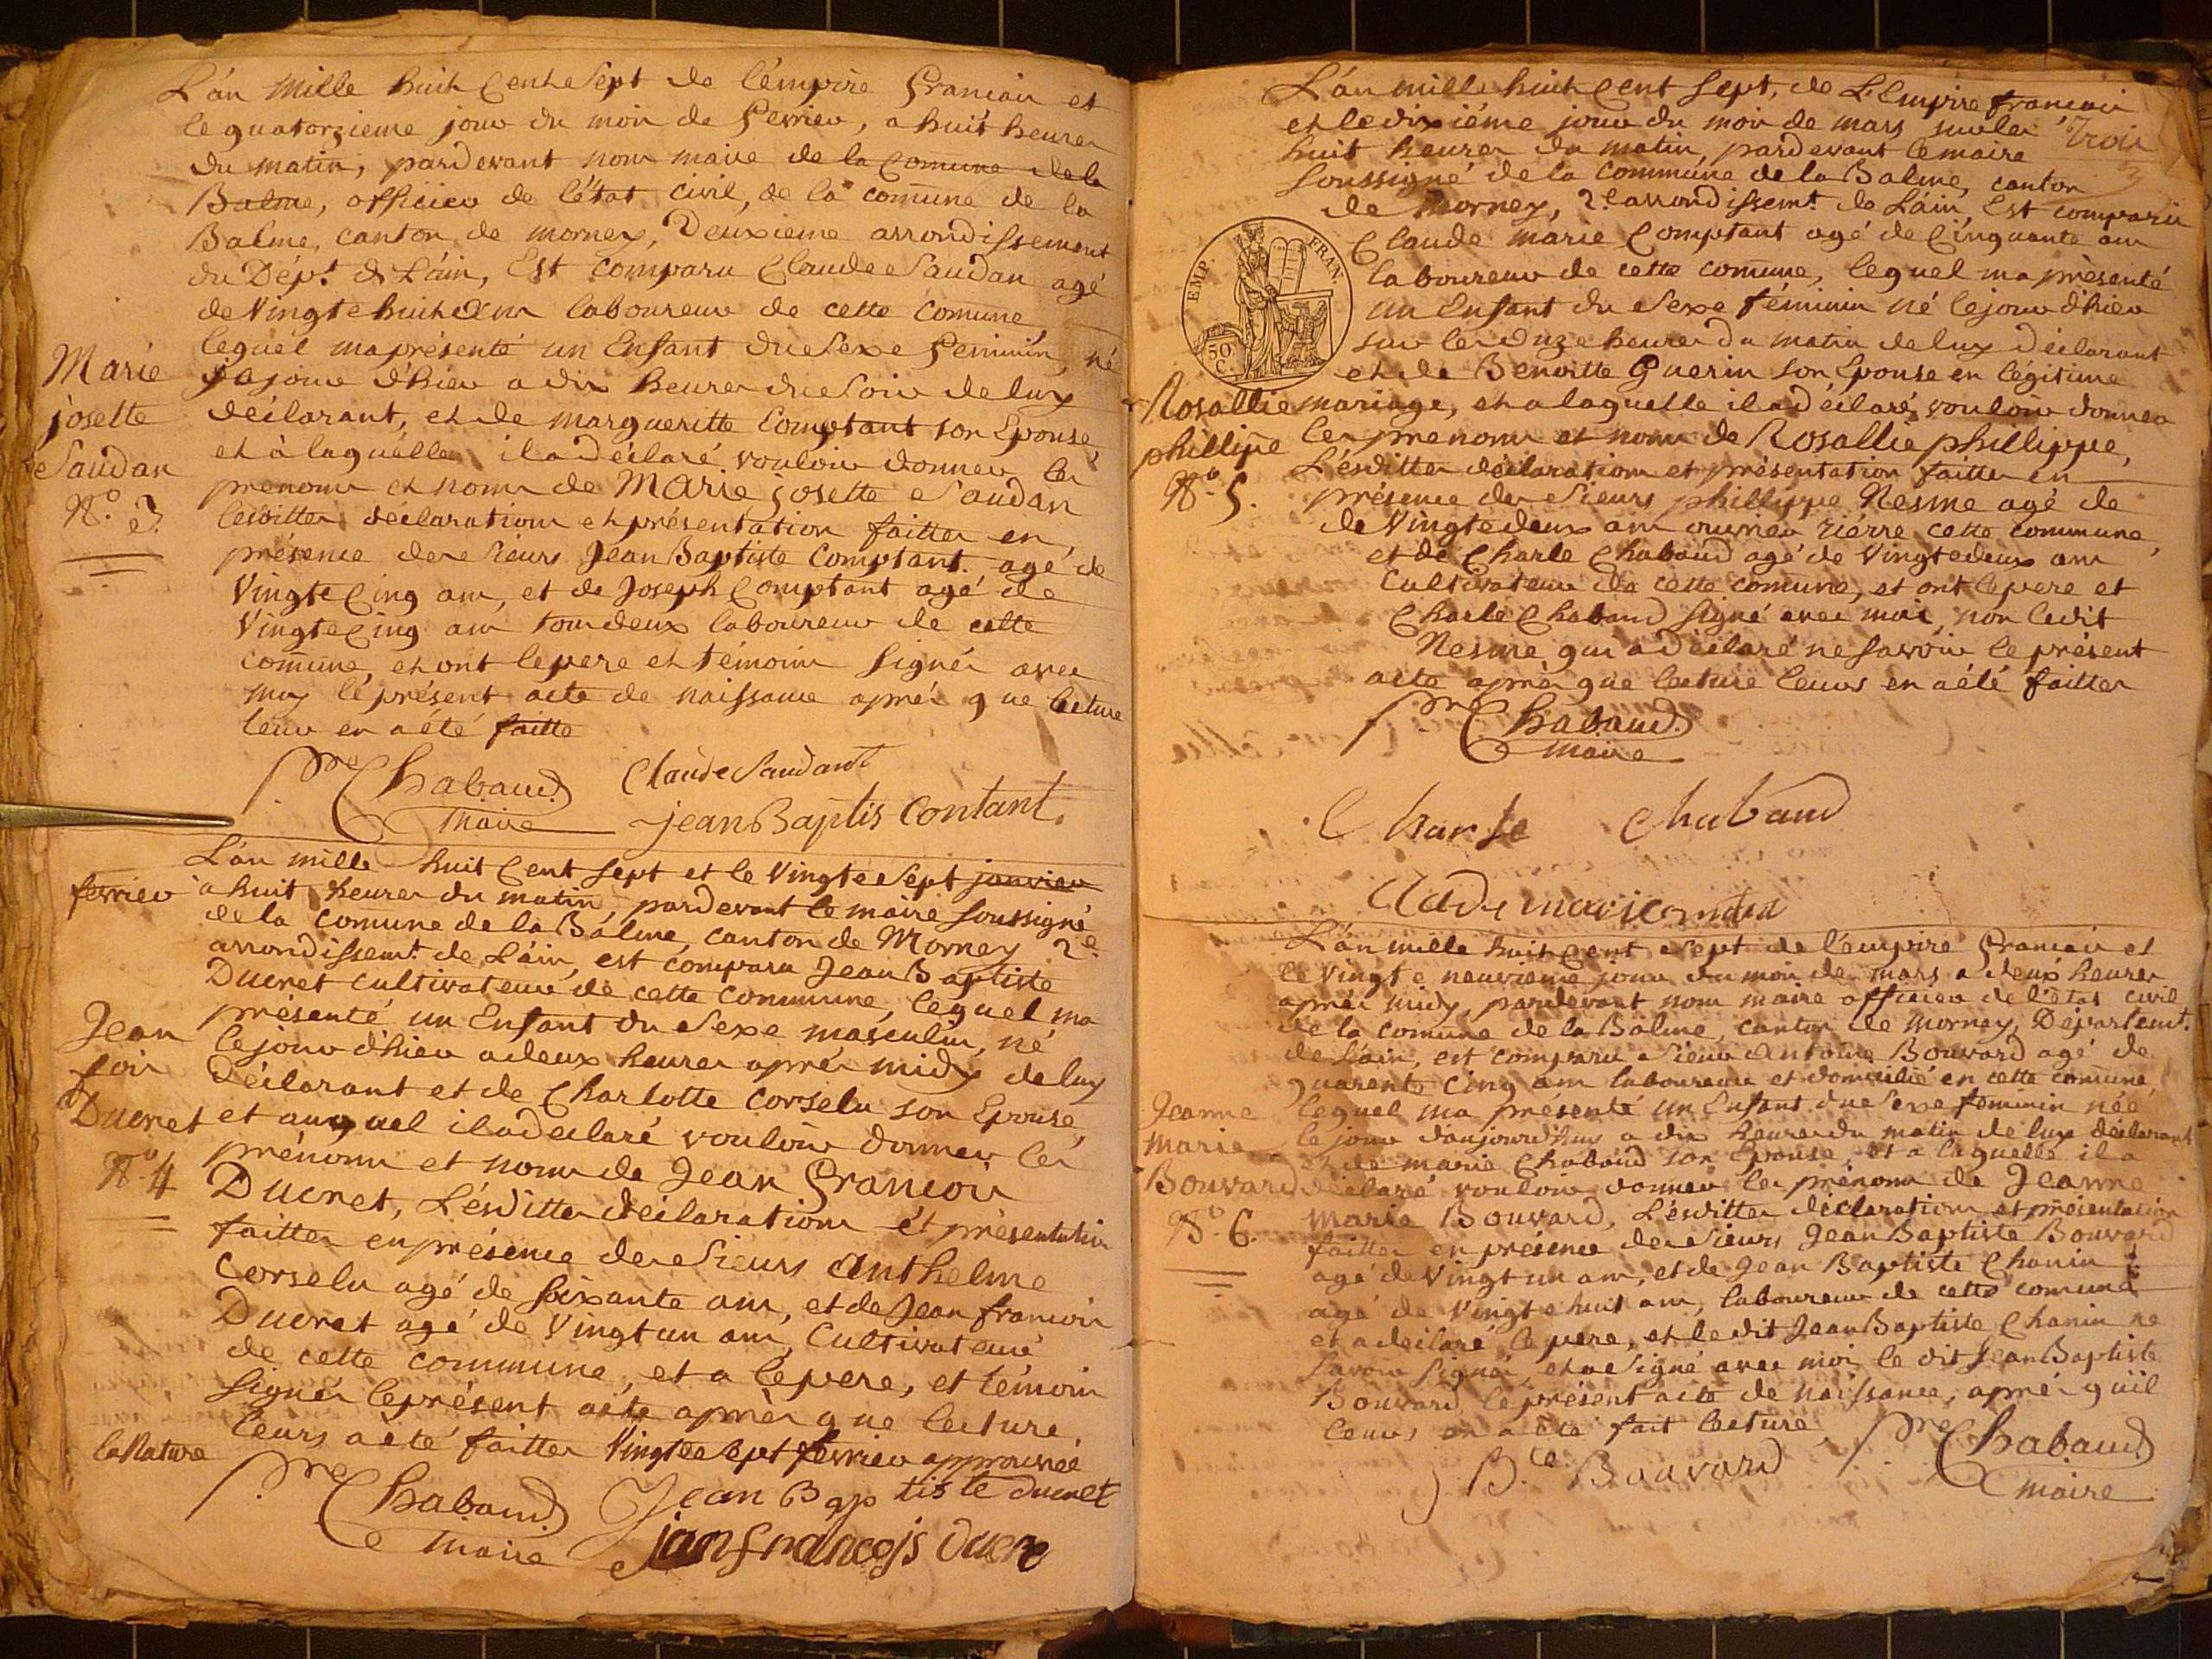 L'an mille huit Cent e Sept de l'émpire françaii et
le quatorzieme jour du moii de fevrier, a huit heures
du matin, pardevant nous maire de la Comune de la
Balme, officier de l'état civil, de la comune de la
Balme, canton de mornex, Deuxieme arrondissement
du Dépt. de L'áin, Est Comparu Claude Saudan agé
de Vingt e huit ans laboureur de cette Comune,
lequel ma présenté un Enfant du Sexe feminin, né
jajour d'hier a dix heures du Soir de luy
déclarant, et de margueritte Comptant son Epouse,
et à laquélle, il a déclaré vouloir donner les
prenoms et noms de Marie josette Saudan
lesditter déclarations et présentation faitter en
présence des Sieurs Jean Baptiste Comptant agé de
Vingte Cinq ans, et de Joseph Comptant agé de
Vingte Cinq ans tous deux laboureur de cette
comune, et ont le pere et témoins Signés avec
moy le présent acte de naissance aprés que lecture
leur en a été faitte
Marie
josette
Saudan
N.o 3.
Pre Chabaud
maire
Claude Saudant
jean Baptis Contant.
L'an mille huit Cent sept et le Vingte Sept janvier
fevrier
a huit heures du matin, pardevant le maire soussigné
de la Comune de la Balme, canton de Mornex 2.e
arrondissemt. de L'áin, est comparu Jean Baptiste
Ducret cultivateur de cette Commune, lequel ma
présenté un Enfant du Sexe masculin, né
le jour d'hier a deux heures aprés midy de luy
Déclarant et de Charlotte Corselu son Epouse,
et auquel il a declaré vouloir donner les
prénoms et noms de Jean françois
Ducret, Lésditter déclarations et présentation
faitter en présence des Sieurs Anthelme
Corselu agé de soixante ans, et de Jean françois
Ducret agé de Vingt un ans, Cultivateur
de cette Commune, et a le pere, et témoin
Signés le présent acte aprés que lecture
leurs a été faitter Vingte Sept fevrier approuvée
Jean
foir
Ducret
N.o 4
la Nature
Pre Chabaud
maire
Jean Baptiste ducret
jan francojs ducre
L'án mille huit Cent Sept, de L'Empire françaii
et le dixiéme jour du moii de mars sur les
Trois
3
huit heures du matin, pardevant le maire
soussigné de la Commune de la Balme, canton
de Mornex, 2.e arrondissemt. de L'áin, Est comparu
Claude marie Comptant agé de Cinquante ans
laboureur de cette comune, lequel ma présenté
un Enfant du Sexe féminin né le jour d'hier
sur les onze heures du matin de luy Déclarant
et de Benoitte Guerin son Epouse en legitime
mariage, et a laquelle il a déclaré, vouloir donner
les prenoms et noms de Rosallie phillippe,
L'ésditter déclarations et présentation faitter en
présence des Sieurs phillippe Nesme agé de
de Vingte deux ans ouvrier riérre cette commune,
et de Charle Chabaud agé de Vingte deux ans
Cultivateur de cette comune, et ont le pere et
Charle Chabaud signé avec moi, non ledit
Nesme qui a déclaré ne savoir le présent
acte aprés que lecture leurs en a été faitter
EMP. FRAN.
50.
C.
Rosallie
phillipe
N.o 5.
Pre Chabaud
maire
Charle Chabaud
L'án mille huit Cent Sept de l'émpire françaii et
le Vingt e neuvieme jour du moii de mars a deux heures
aprés midy, pardevant nous maire officier de l'état civil
de la comune de la Balme, canton de mornex, Départemt.
de L'áin, est comparu Sieur Antoine Bouvard agé de
quarente Cinq ans laboureur et domicilié en cette comune
lequel ma présenté un Enfant du Sexe feminin née
le jour d'aujourd'huy a dix heures du matin de luy déclarant
et de marie Chabaud son Epouse, et a laquelle il a
déclaré vouloir donner les prénoms de Jeanne
Marie Bouvard, L'ésditter déclarations et présentation
faitter en présence des Sieurs Jean Baptiste Bouvard
agé de Vingt un ans, et de Jean Baptiste Chanin
agé de Vingt e huit ans, laboureur de cette comune
et a déclaré le pere, et le dit Jean Baptiste Chanin ne
savoir signér, et a Signé avec moi le dit Jean Baptiste
Bouvard le présent acte de naissance, aprés quil
leurs en a été fait lecture
Jeanne
Marie
Bouvard
N.o 6.
J B.te Bouvard
Pre Chabaud
maire